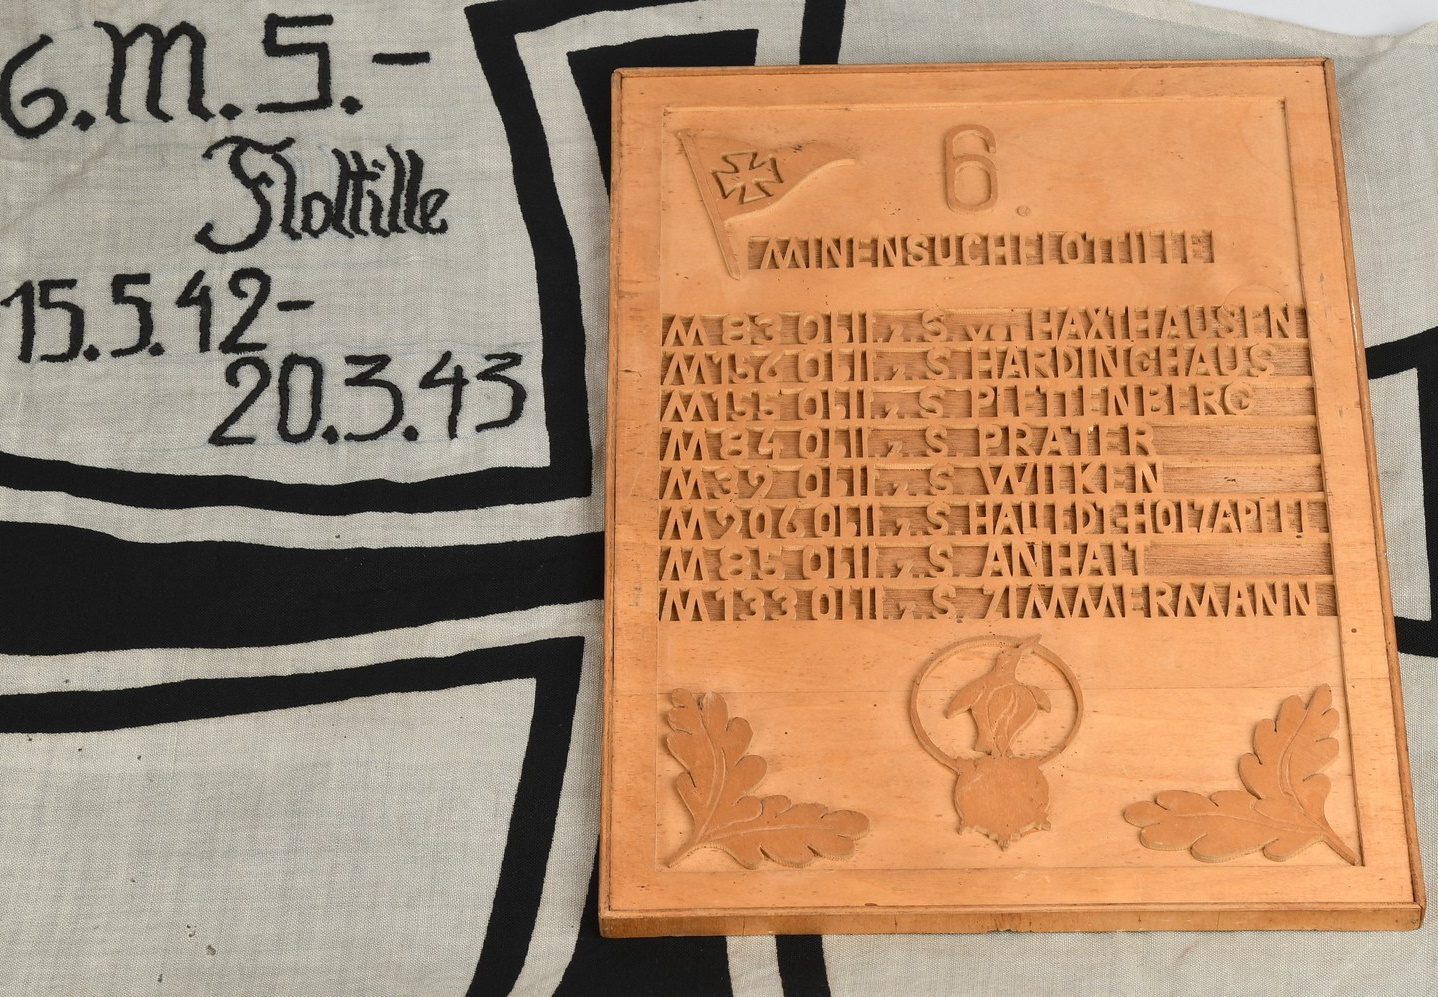 6.M.S.-
Flottille
15.5.42-
20.3.43
6.
MINENSUCHFLOTTILLE
M 83 Obll.z.S. von HAXTHAUSEN
M 156 Obll.z.S. HARDINGHAUS
M 155 Obll.z.S. PLETTENBERG
M 84 Obll.z.S. PRATER
M 39 Obll.z.S. WILKEN
M 206 Obll.z.S.
M 85 Obll.z.S. ANHALT
M 133 Obll.z.S. ZIMMERMANN